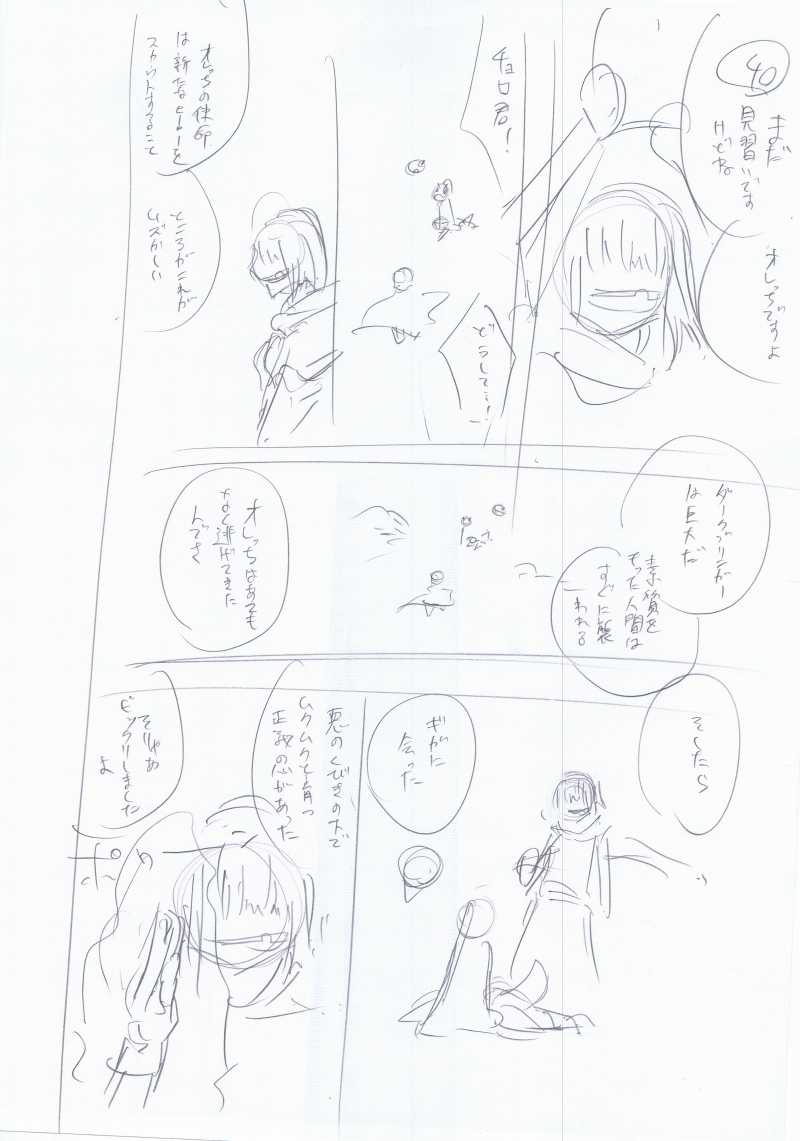 40
まだ
見習いです
けどね
オレっちですよ
チョロ君!
どうして…!
オレっちの使命
は新たなヒーローを
スカウトすること
ところがこれが
ムズかしい
ダークブリンガー
は巨大だ
素質を
もった人間は
すぐに襲
われる
オレっちはあても
なく逃げてきた
んでさ
そしたら
ギガに
会った
悪のくびきの下で
ムクムクと育つ
正義の心があった
そりゃあ
ビックリしました
よ
ポッ